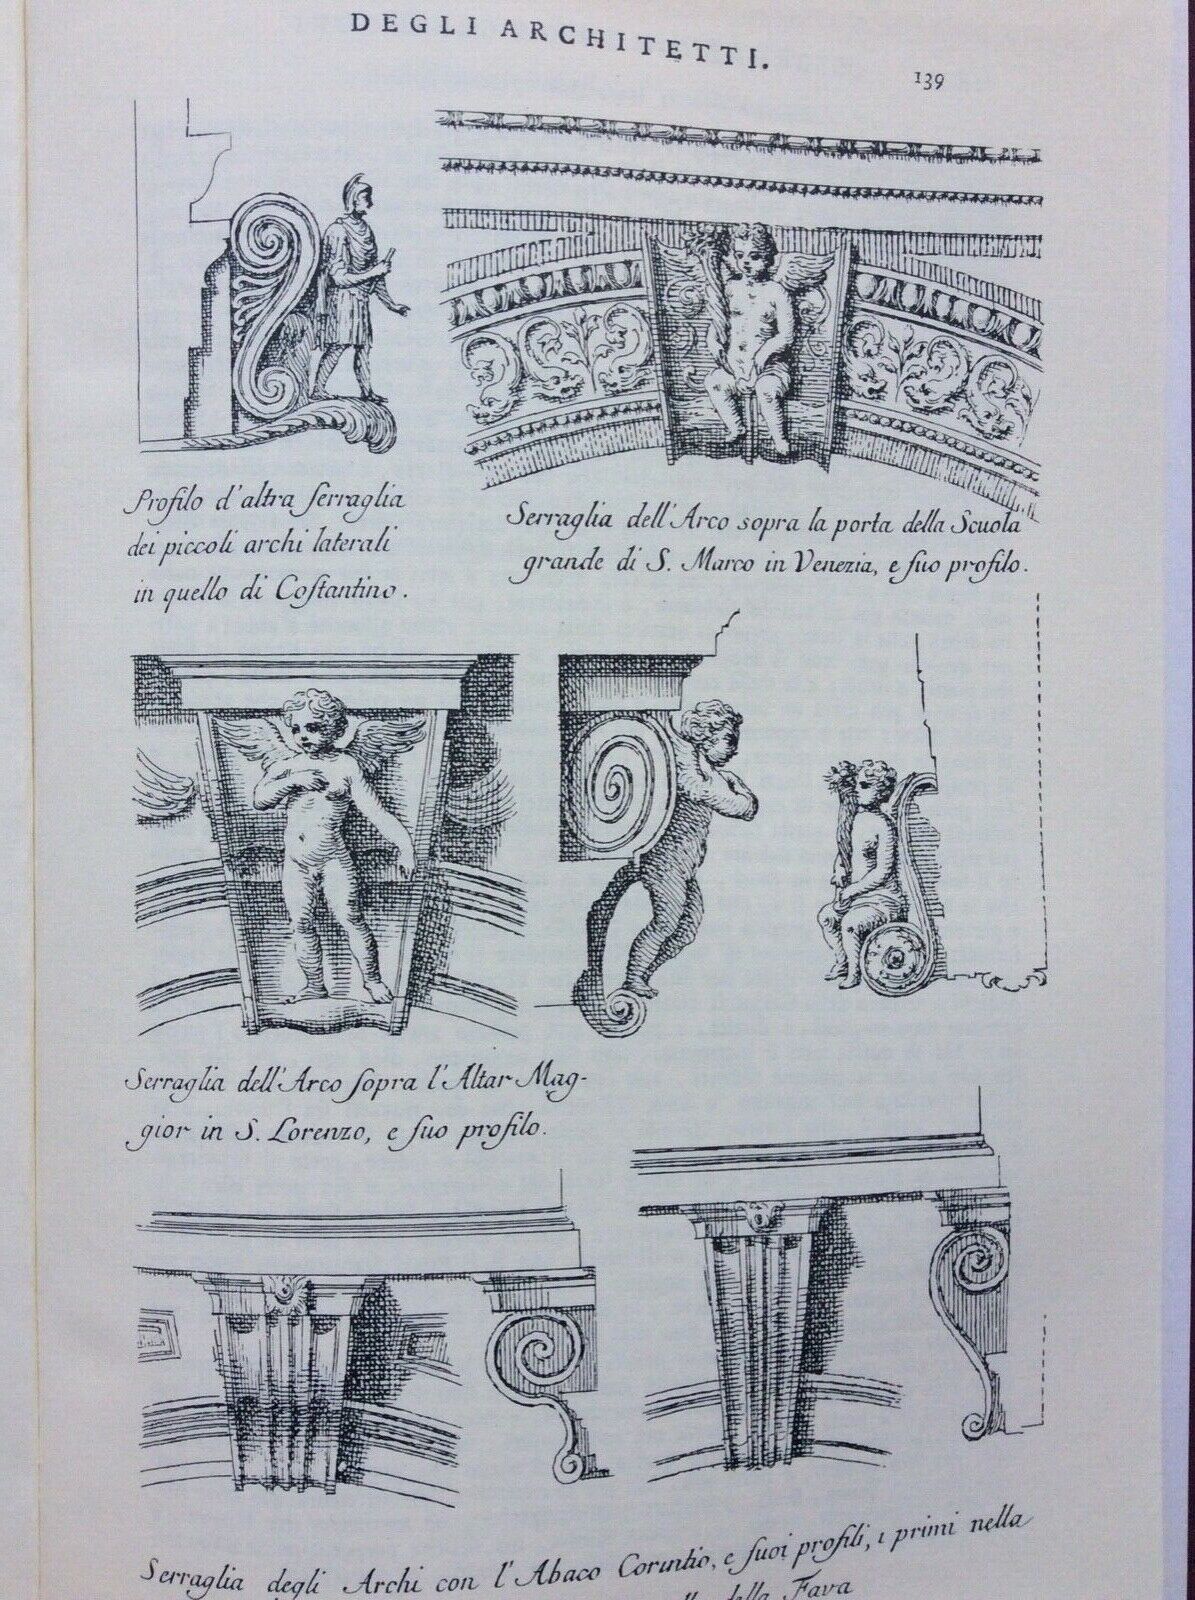 DEGLI ARCHITETTI.
139
Profilo d'altra ſerraglia
dei piccoli archi laterali
in quello di Coſtantino.
Serraglia dell'Arco sopra la porta della Scuola
grande di S. Marco in Venezia, e ſuo profilo.
Serraglia dell'Arco ſopra l'Altar Mag-
gior in S. Lorenzo, e ſuo profilo.
Serraglia degli Archi con l'Abaco Corintio, e ſuoi profili, i primi nella
della Fava